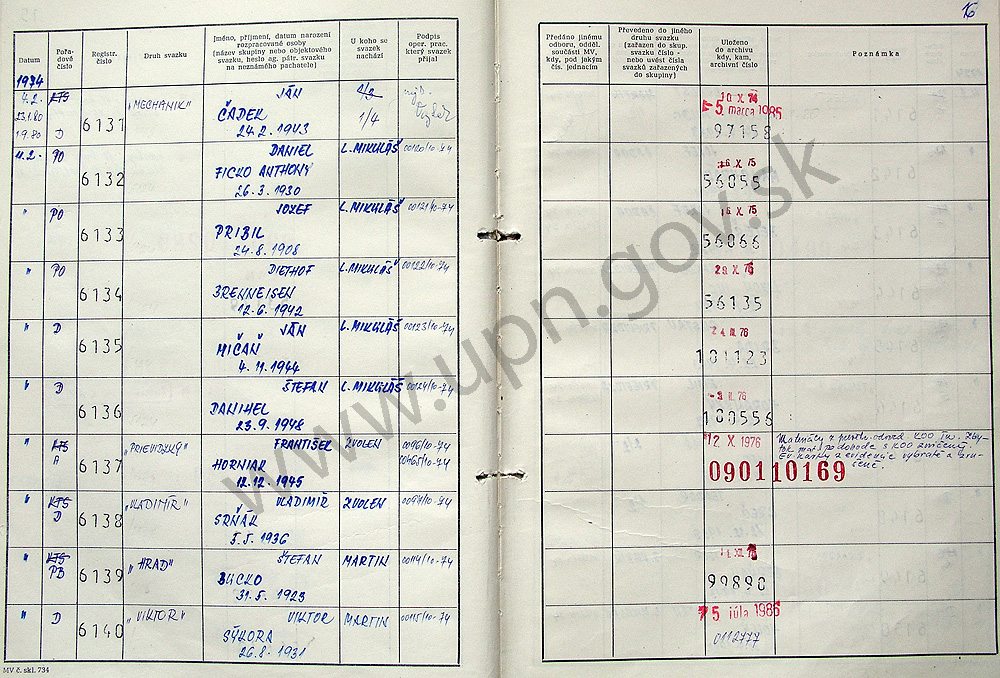 16
Datum
Pořadové číslo
Registr. číslo
Druh svazku
Jméno, příjmení, datum narození rozpracované osoby (název skupiny nebo objektového svazku, heslo ag. pátr. svazku na neznámého pachatele)
U koho se svazek nachází
Podpis oper. prac. který svazek přijal
Předáno jinému odboru, odděl. součásti MV, kdy, pod jakým čís. jednacím
Převedeno do jiného druhu svazku (zařazen do skup. svazku číslo - nebo uvést čísla svazků zařazených do skupiny)
Uloženo do archivu kdy, kam, archivní číslo
Poznámka
1974
4.2. KTS 6131 „MECHANIK" JÁN
ČÁDEK 1/4
D 24.2.1943
10 X 76
5. marca 1985
97158
4.2. PO 6132 DANIEL L. MIKULÁŠ 00120/10-74
FICKO ANTHONY
26.3.1930
16 X 75
56055
" PO 6133 JOZEF L. MIKULÁŠ 00121/10-74
PRIBIL
24.8.1908
16 X 75
56066
" PO 6134 DIETHOF L. MIKULÁŠ 00122/10-74
BRENNEISEN
12.6.1942
56135
" D 6135 JÁN L. MIKULÁŠ 00123/10-74
MIČAŇ
4.11.1944
101123
" D 6136 ŠTEFAN L. MIKULÁŠ 00124/10-74
DANIHEL
23.9.1948
100556
" KTS 6137 „PRIEVIDZKÝ" FRANTIŠEK ZVOLEN 0096/10-74
A HORNIAK
12.12.1945
12 X 1976
090110169
" KTS 6138 „VLADIMÍR" VLADIMÍR ZVOLEN 0097/10-74
D SRŇÁK
5.5.1936
" KTS 6139 „HRAD" ŠTEFAN MARTIN 00114/10-74
PB BUCKO
31.5.1923
99890
" D 6140 „VIKTOR" VIKTOR MARTIN 00115/10-74
SÝKORA
26.8.1931
15 júla 1986
0112777
MV č. skl. 734
www.upn.gov.sk